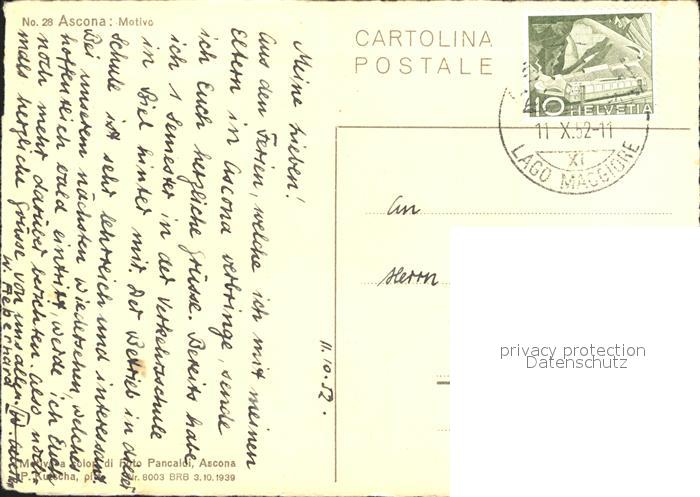 No. 28 Ascona: Motivo
CARTOLINA
POSTALE
10
HELVETIA
11 X.52-11
XI
LAGO MAGGIORE
Meine Lieben!
Aus den Ferien, welche ich mit meinen
Eltern in Ascona verbringe, sende
ich Euch herzliche Grüsse. Bereits habe
ich 1 Semester in der Verkehrsschule
in Biel hinter mir. Der Betrieb in dieser
Schule ist sehr lehrreich und interessant
Bei unserem nächsten Wiedersehen, welches
hoffentlich bald eintrifft, werde ich Euch
noch mehr darüber berichten. Also noch-
mals herzliche Grüsse von uns allen.
11.10.52.
An
Herrn
privacy protection
Datenschutz
Foto Pancaldi, Ascona
8003 BRB 3.10.1939